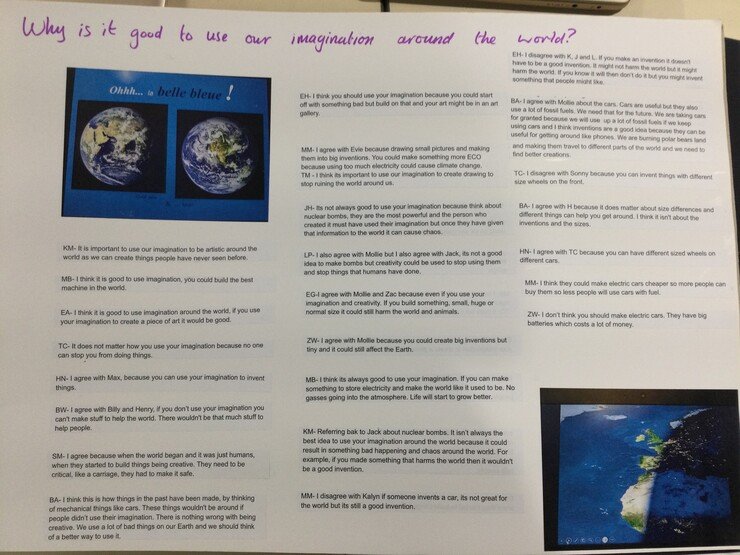 Why is it good to use our imagination around the world?
Ohhh... la belle bleue !
KM- It is important to use our imagination to be artistic around the
world as we can create things people have never seen before.
MB- I think it is good to use imagination, you could build the best
machine in the world.
EA- I think it is good to use imagination around the world, if you use
your imagination to create a piece of art it would be good.
TC- It does not matter how you use your imagination because no one
can stop you from doing things.
HN- I agree with Max, because you can use your imagination to invent
things.
BW- I agree with Billy and Henry, if you don't use your imagination you
can't make stuff to help the world. There wouldn't be that much stuff to
help people.
SM- I agree because when the world began and it was just humans,
when they started to build things being creative. They need to be
critical, like a carriage, they had to make it safe.
BA- I think this is how things in the past have been made, by thinking
of mechanical things like cars. These things wouldn't be around if
people didn't use their imagination. There is nothing wrong with being
creative. We use a lot of bad things on our Earth and we should think
of a better way to use it.
EH- I think you should use your imagination because you could start
off with something bad but build on that and your art might be in an art
gallery.
MM- I agree with Evie because drawing small pictures and making
them into big inventions. You could make something more ECO
because using too much electricity could cause climate change.
TM - I think its important to use our imagination to create drawing to
stop ruining the world around us.
JH- Its not always good to use your imagination because think about
nuclear bombs, they are the most powerful and the person who
created it must have used their imagination but once they have given
that information to the world it can cause chaos.
LP- I also agree with Mollie but I also agree with Jack, its not a good
idea to make bombs but creativity could be used to stop using them
and stop things that humans have done.
EG-I agree with Mollie and Zac because even if you use your
imagination and creativity. If you build something, small, huge or
normal size it could still harm the world and animals.
ZW- I agree with Mollie because you could create big inventions but
tiny and it could still affect the Earth.
MB- I think its always good to use your imagination. If you can make
something to store electricity and make the world like it used to be. No
gasses going into the atmosphere. Life will start to grow better.
KM- Referring bak to Jack about nuclear bombs. It isn't always the
best idea to use your imagination around the world because it could
result in something bad happening and chaos around the world. For
example, if you made something that harms the world then it wouldn't
be a good invention.
MM- I disagree with Kalyn if someone invents a car, its not great for
the world but its still a good invention.
EH- I disagree with K, J and L. If you make an invention it doesn't
have to be a good invention. It might not harm the world but it might
harm the world. If you know it will then don't do it but you might invent
something that people might like.
BA- I agree with Mollie about the cars. Cars are useful but they also
use a lot of fossil fuels. We need that for the future. We are taking cars
for granted because we will use up a lot of fossil fuels if we keep
using cars and I think inventions are a good idea because they can be
useful for getting around like phones. We are burning polar bears land
and making them travel to different parts of the world and we need to
find better creations.
TC- I disagree with Sonny because you can invent things with different
size wheels on the front.
BA- I agree with H because it does matter about size differences and
different things can help you get around. I think it isn't about the
inventions and the sizes.
HN- I agree with TC because you can have different sized wheels on
different cars.
MM- I think they could make electric cars cheaper so more people can
buy them so less people will use cars with fuel.
ZW- I don't think you should make electric cars. They have big
batteries which costs a lot of money.